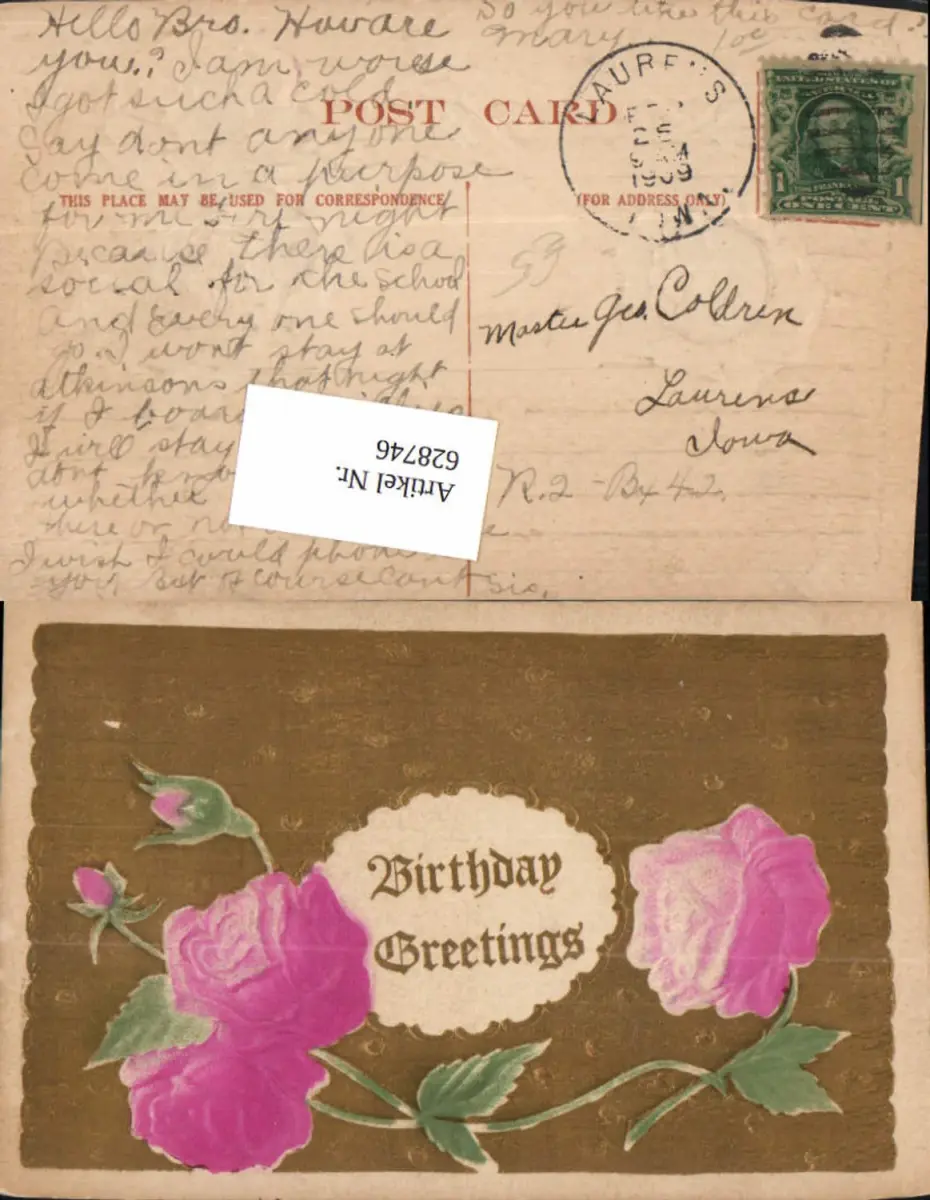 Hello Bro. How are
you.? I am worse
I got such a cold.
Say dont anyone
come in a purpose
for me Fri night
because there is a
social for the school
and Every one should
go. I wont stay at
atkinsons that night
if I board
I will stay
dont know
whether
here or
I wish I could phone
you, but of course cant
Sis.
So you like this card?
Mary 10¢
POST CARD
THIS PLACE MAY BE USED FOR CORRESPONDENCE
(FOR ADDRESS ONLY)
LAURENS
1909
UNITED STATES OF AMERICA
1 1
POSTAGE
ONE CENT
59
Master Geo. Coldren
Laurens
Iowa
R.2 - Bx 42.
Artikel Nr.
628746
Birthday
Greetings